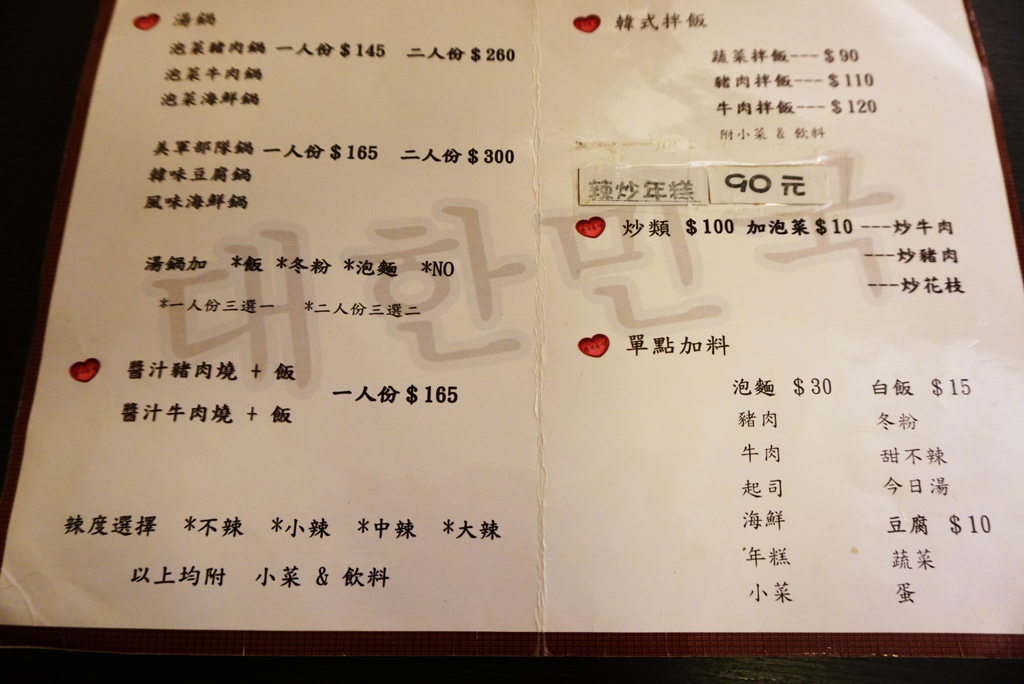 湯鍋
泡菜豬肉鍋 一人份$145 二人份$260
泡菜牛肉鍋
泡菜海鮮鍋
美軍部隊鍋 一人份$165 二人份$300
韓味豆腐鍋
風味海鮮鍋
湯鍋加 *飯 *冬粉 *泡麵 *NO
*一人份三選一 *二人份三選二
醬汁豬肉燒 + 飯
一人份$165
醬汁牛肉燒 + 飯
辣度選擇 *不辣 *小辣 *中辣 *大辣
以上均附 小菜 & 飲料
대한민국
韓式拌飯
蔬菜拌飯---$90
豬肉拌飯---$110
牛肉拌飯---$120
附小菜 & 飲料
辣炒年糕 90元
炒類 $100 加泡菜$10 ---炒牛肉
---炒豬肉
---炒花枝
單點加料
泡麵 $30 白飯 $15
豬肉 冬粉
牛肉 甜不辣
起司 今日湯
海鮮 豆腐 $10
年糕 蔬菜
小菜 蛋